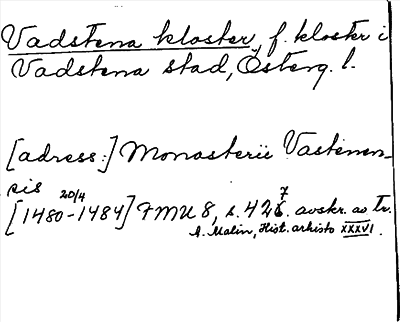 Vadstena kloster, f. kloster i
Vadstena stad, Österg. l.
[adress:] Monasterii Vastenen-
sis
20/4
[1480-1484] FMU 8, s. 427. avskr. av tr.
A. Malin, Hist. arkisto XXXVI.